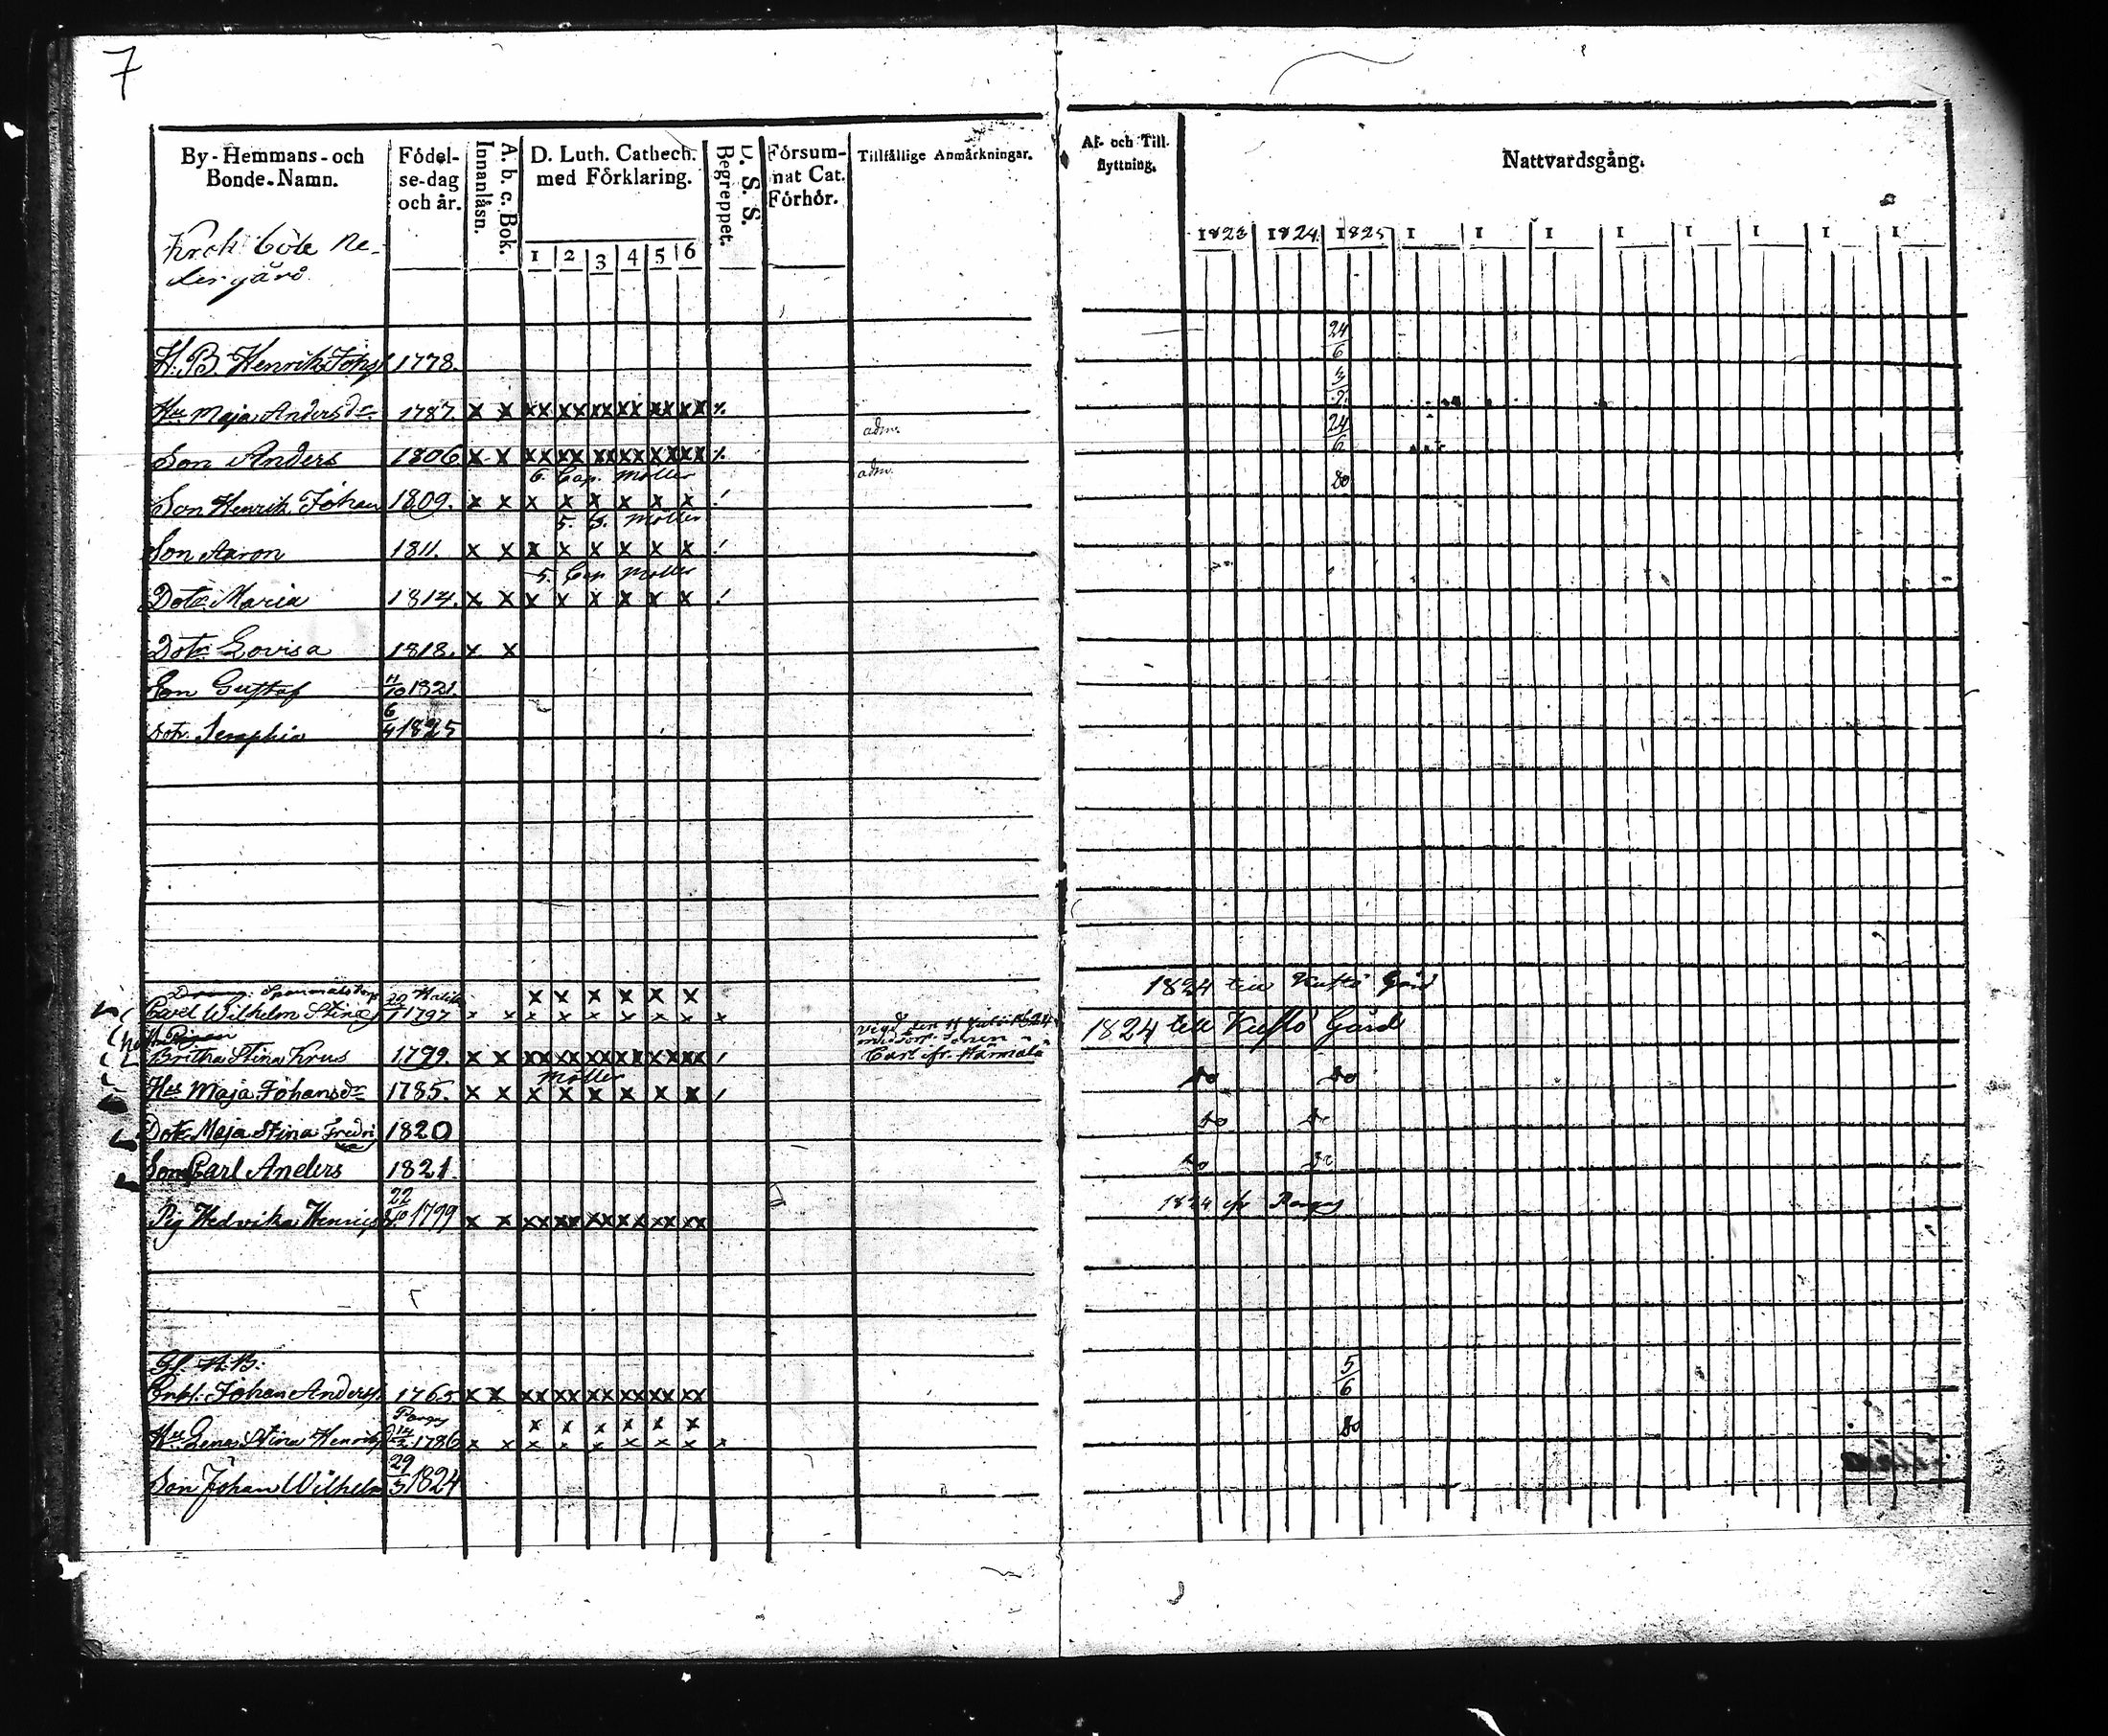 7
By-Hemmans-och Bonde-Namn.
Födelse-dag och år.
Innanläsn.
A. b. c. Bok.
D. Luth. Cathech. med Förklaring.
1 2 3 4 5 6
D. S. S.
Begreppet.
Försummat Cat. Förhör.
Tillfällige Anmärkningar.
Af- och Till. flyttning.
Nattvardsgång.
1823 1824 1825 1 1 1 1 1 1 1 1
Krokböle Ne-
dergård
H. B. Henrik Johs 1778. 24/6
Hu Maja Andersdr 1787. x x xx xx xx xx xx xx 3/2
adm. 24/6
Son Anders 1806 x x xx xx xx xx xx xx
6. Cap. Möller adm.
Son Henrik Johan 1809. x x x x x x x x / do
5. C. Möller
Son Aaron 1811. x x x x x x x x /
5. Cap Möller
Dotr Maria 1814. x x x x x x x x /
Dotr Lovisa 1818. x x
Son Gustaf 11/10 1821.
Dotr. Seraphia 6/4 1825
x x x x x x 1824 till Kustö Gård
Carel Wilhelm Stina 1797 x x x x x x x x x
Pigan vigd den 11 Juli 1824 1824 till Kustö Gård
Britha Stina Krus 1799. x x xx xx xx xx xx xx / Carl fr.
Möller
Hu Maja Johansdr 1785. x x x x x x x x / do do
Dotr Maja Stina Fredri 1820 do do
ka
Son Carl Anders 1821. do do
Pig Hedvika Henrics 22/10 1799 x x xx xx xx xx xx xx 1824 fr Pargas
Gl. H. B.
Enkl. Johan Anderss 1765 x x xx xx xx xx xx xx 5/6
Pargas x x x x x x
Hu Lena Stina Henriks 14/2 1786 x x x x x x x x x do
Son Johan Wilhelm 29/3 1824